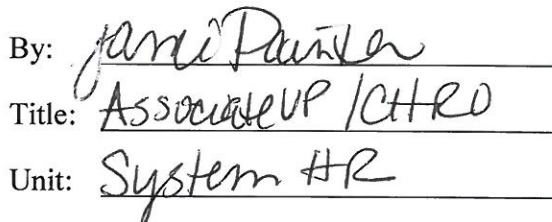 By: Jami Painter
Title: Associate VP / CHRO
Unit: System HR